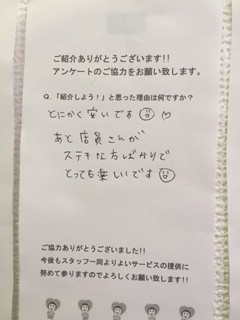 ご紹介ありがとうございます!!
アンケートのご協力をお願い致します。
Q.「紹介しよう!」と思った理由は何ですか?
とにかく安いです
あと店員さんが
ステキな方ばかりで
とっても楽しいです
ご協力ありがとうございました!!
今後もスタッフ一同よりよいサービスの提供に
努めて参りますのでよろしくお願い致します!!